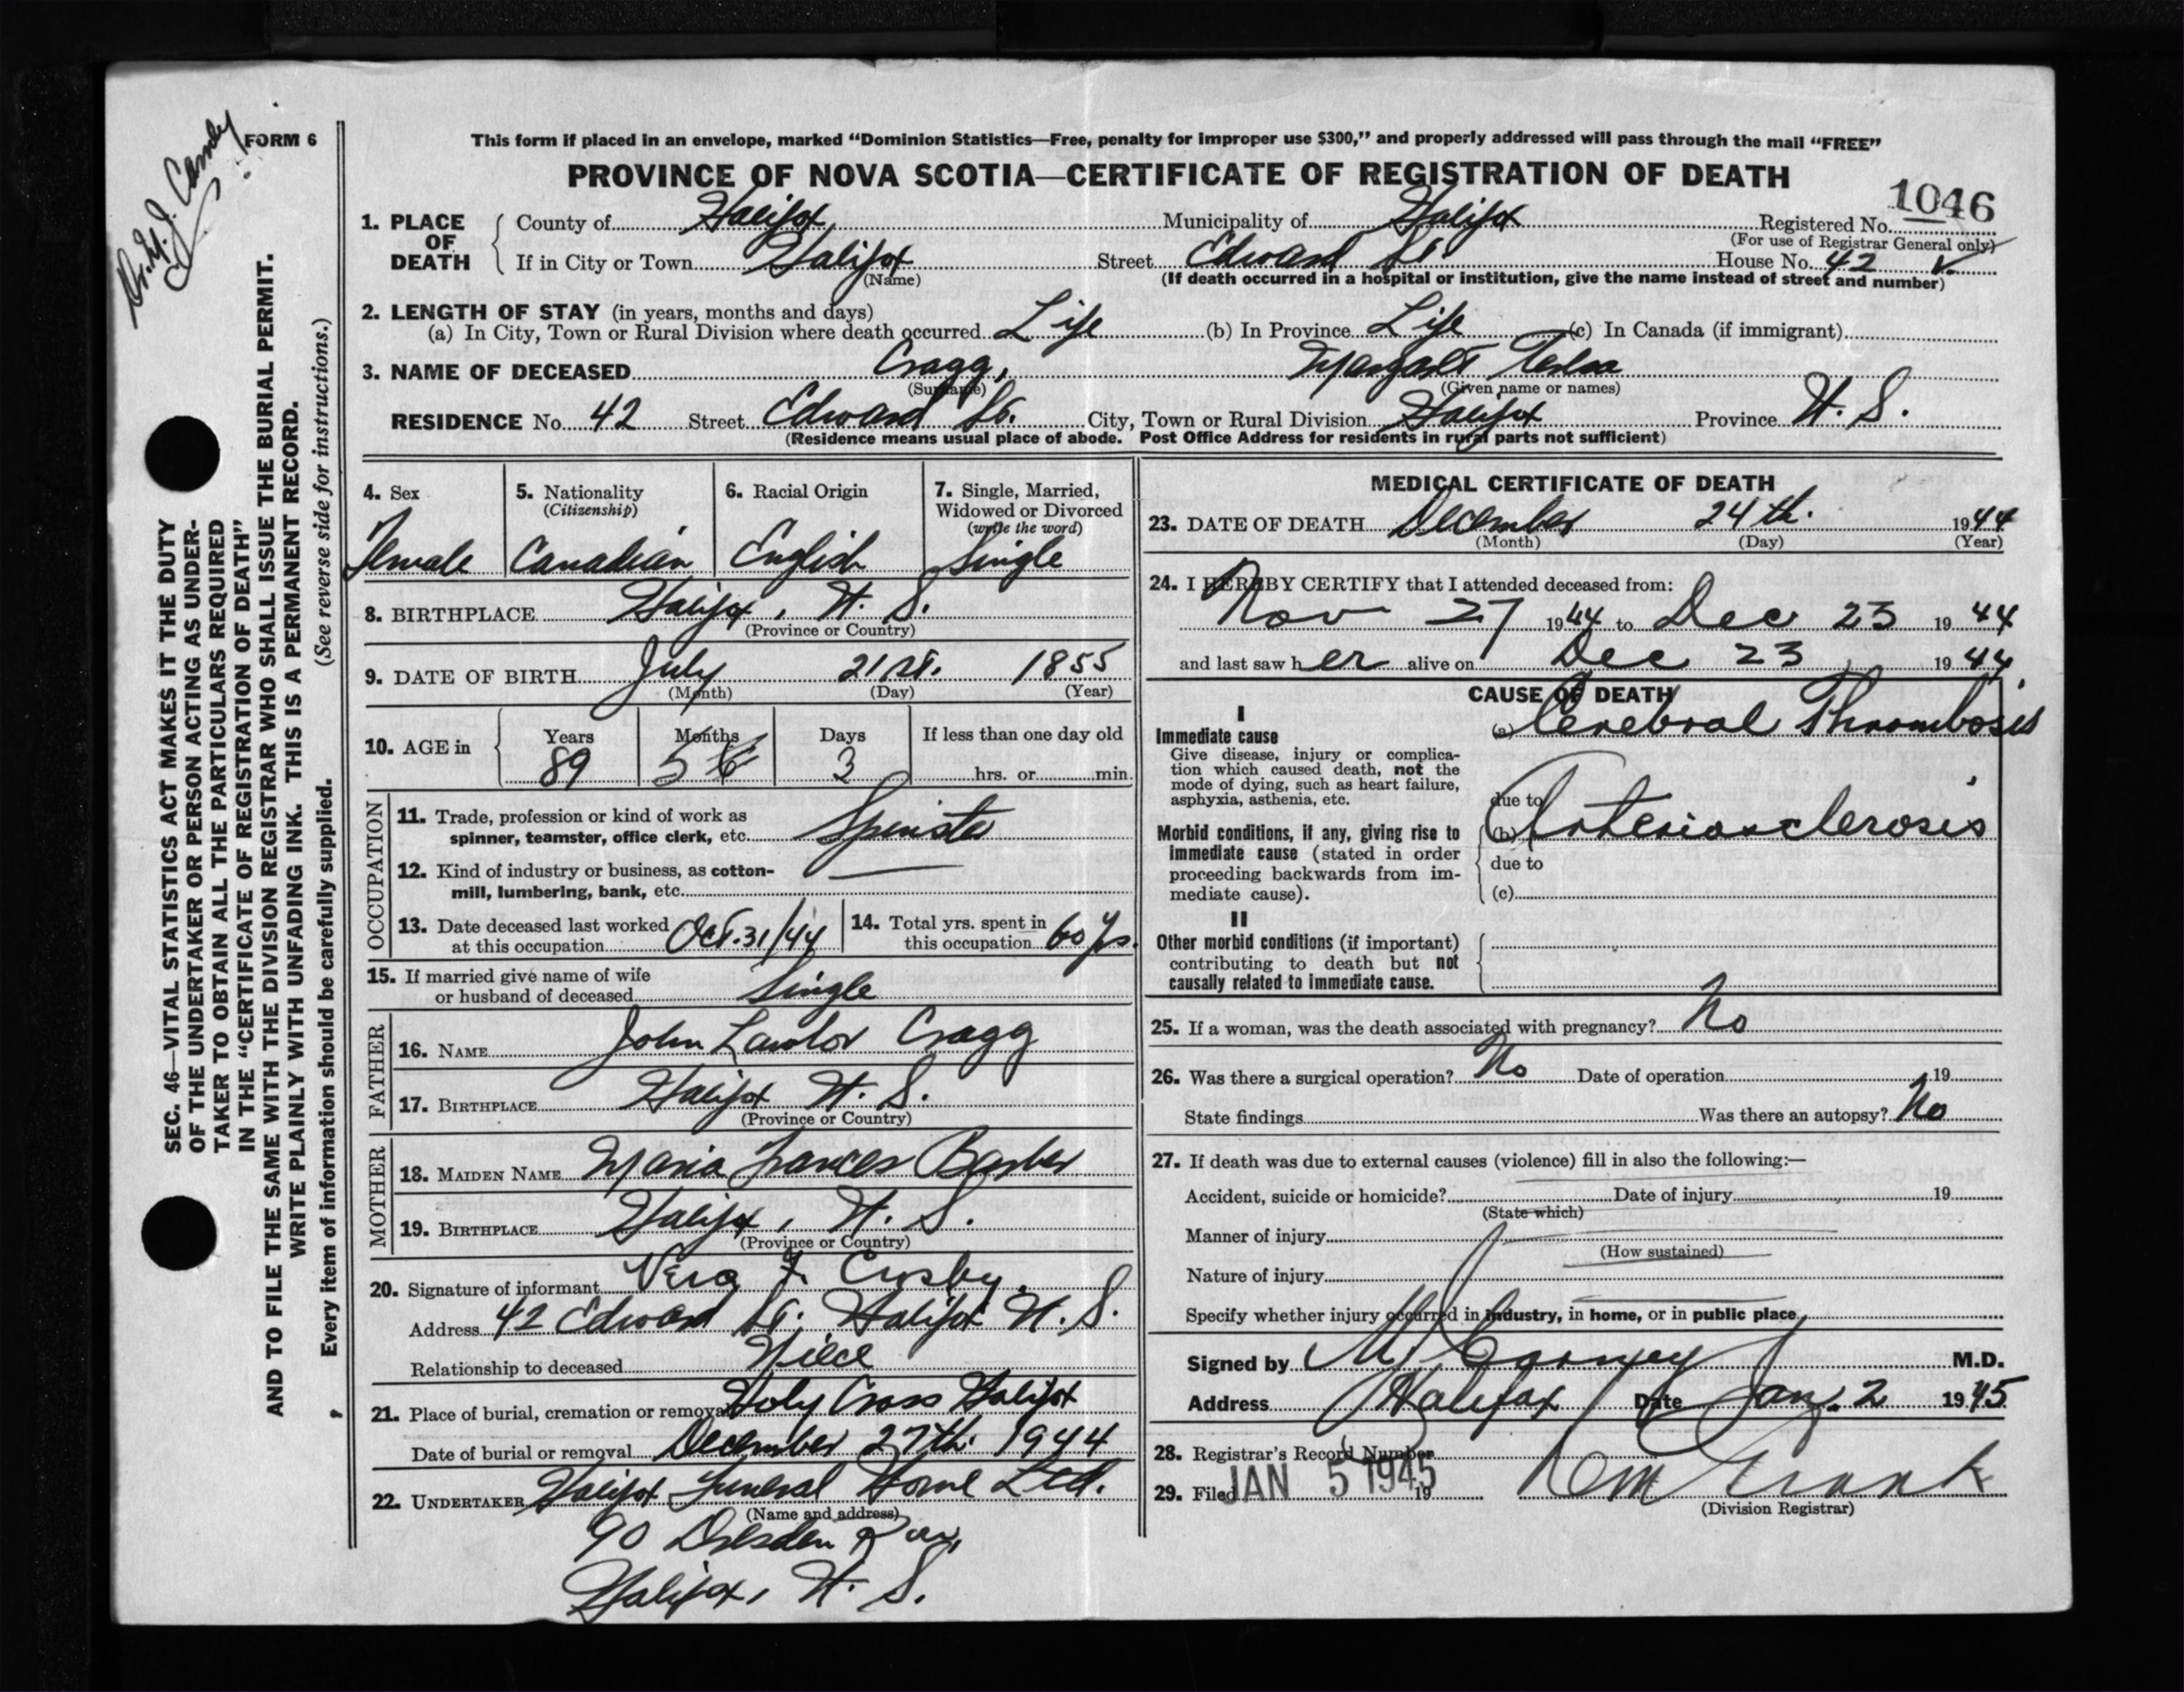 FORM 6
This form if placed in an envelope, marked “Dominion Statistics—Free, penalty for improper use $300,” and properly addressed will pass through the mail “FREE”
PROVINCE OF NOVA SCOTIA—CERTIFICATE OF REGISTRATION OF DEATH
1046
1. PLACE OF DEATH County of Halifax Municipality of Halifax Registered No.
(For use of Registrar General only)
If in City or Town Halifax Street Edward St. House No. 42
(Name) (If death occurred in a hospital or institution, give the name instead of street and number)
2. LENGTH OF STAY (in years, months and days)
(a) In City, Town or Rural Division where death occurred Life (b) In Province Life (c) In Canada (if immigrant)
3. NAME OF DECEASED Cragg, Margaret
(Surname) (Given name or names)
RESIDENCE No. 42 Street Edward St. City, Town or Rural Division Halifax Province N. S.
(Residence means usual place of abode. Post Office Address for residents in rural parts not sufficient)
4. Sex 5. Nationality 6. Racial Origin 7. Single, Married,
(Citizenship) Widowed or Divorced
(write the word)
Female Canadian English Single
8. BIRTHPLACE Halifax, N. S.
(Province or Country)
9. DATE OF BIRTH July 21st. 1855
(Month) (Day) (Year)
10. AGE in Years Months Days If less than one day old
89 5 6 3 hrs. or min.
OCCUPATION
11. Trade, profession or kind of work as
spinner, teamster, office clerk, etc. Spinster
12. Kind of industry or business, as cotton-
mill, lumbering, bank, etc.
13. Date deceased last worked
at this occupation Oct. 31/44
14. Total yrs. spent in
this occupation 60 yrs.
15. If married give name of wife
or husband of deceased Single
FATHER
16. NAME John Lawlor Cragg
17. BIRTHPLACE Halifax N. S.
(Province or Country)
MOTHER
18. MAIDEN NAME Maria Frances Barber
19. BIRTHPLACE Halifax, N. S.
(Province or Country)
20. Signature of informant Vera F. Crosby.
Address 42 Edward St. Halifax N. S.
Relationship to deceased Niece
21. Place of burial, cremation or removal Holy Cross Halifax
Date of burial or removal December 27th. 1944
22. UNDERTAKER Halifax Funeral Home Ltd.
(Name and address)
90 Dresden Row,
Halifax, N. S.
MEDICAL CERTIFICATE OF DEATH
23. DATE OF DEATH December 24th. 1944
(Month) (Day) (Year)
24. I HEREBY CERTIFY that I attended deceased from:
Nov 27 1944 to Dec 23 1944
and last saw her alive on Dec 23 1944
CAUSE OF DEATH
I
Immediate cause (a) Cerebral Thrombosis
Give disease, injury or complica-
tion which caused death, not the
mode of dying, such as heart failure,
asphyxia, asthenia, etc.
due to
Morbid conditions, if any, giving rise to (b) Arteriosclerosis
immediate cause (stated in order
due to
proceeding backwards from im-
mediate cause). (c)
II
Other morbid conditions (if important)
contributing to death but not
causally related to immediate cause.
25. If a woman, was the death associated with pregnancy? No
26. Was there a surgical operation? No Date of operation 19
State findings Was there an autopsy? No
27. If death was due to external causes (violence) fill in also the following:—
Accident, suicide or homicide? Date of injury 19
(State which)
Manner of injury
(How sustained)
Nature of injury
Specify whether injury occurred in industry, in home, or in public place
Signed by M.D.
Address Halifax Date Jan. 2 1945
28. Registrar's Record Number
29. Filed JAN 5 1945 19
(Division Registrar)
SEC. 46—VITAL STATISTICS ACT MAKES IT THE DUTY
OF THE UNDERTAKER OR PERSON ACTING AS UNDER-
TAKER TO OBTAIN ALL THE PARTICULARS REQUIRED
IN THE “CERTIFICATE OF REGISTRATION OF DEATH”
AND TO FILE THE SAME WITH THE DIVISION REGISTRAR WHO SHALL ISSUE THE BURIAL PERMIT.
WRITE PLAINLY WITH UNFADING INK. THIS IS A PERMANENT RECORD.
Every item of information should be carefully supplied. (See reverse side for instructions.)